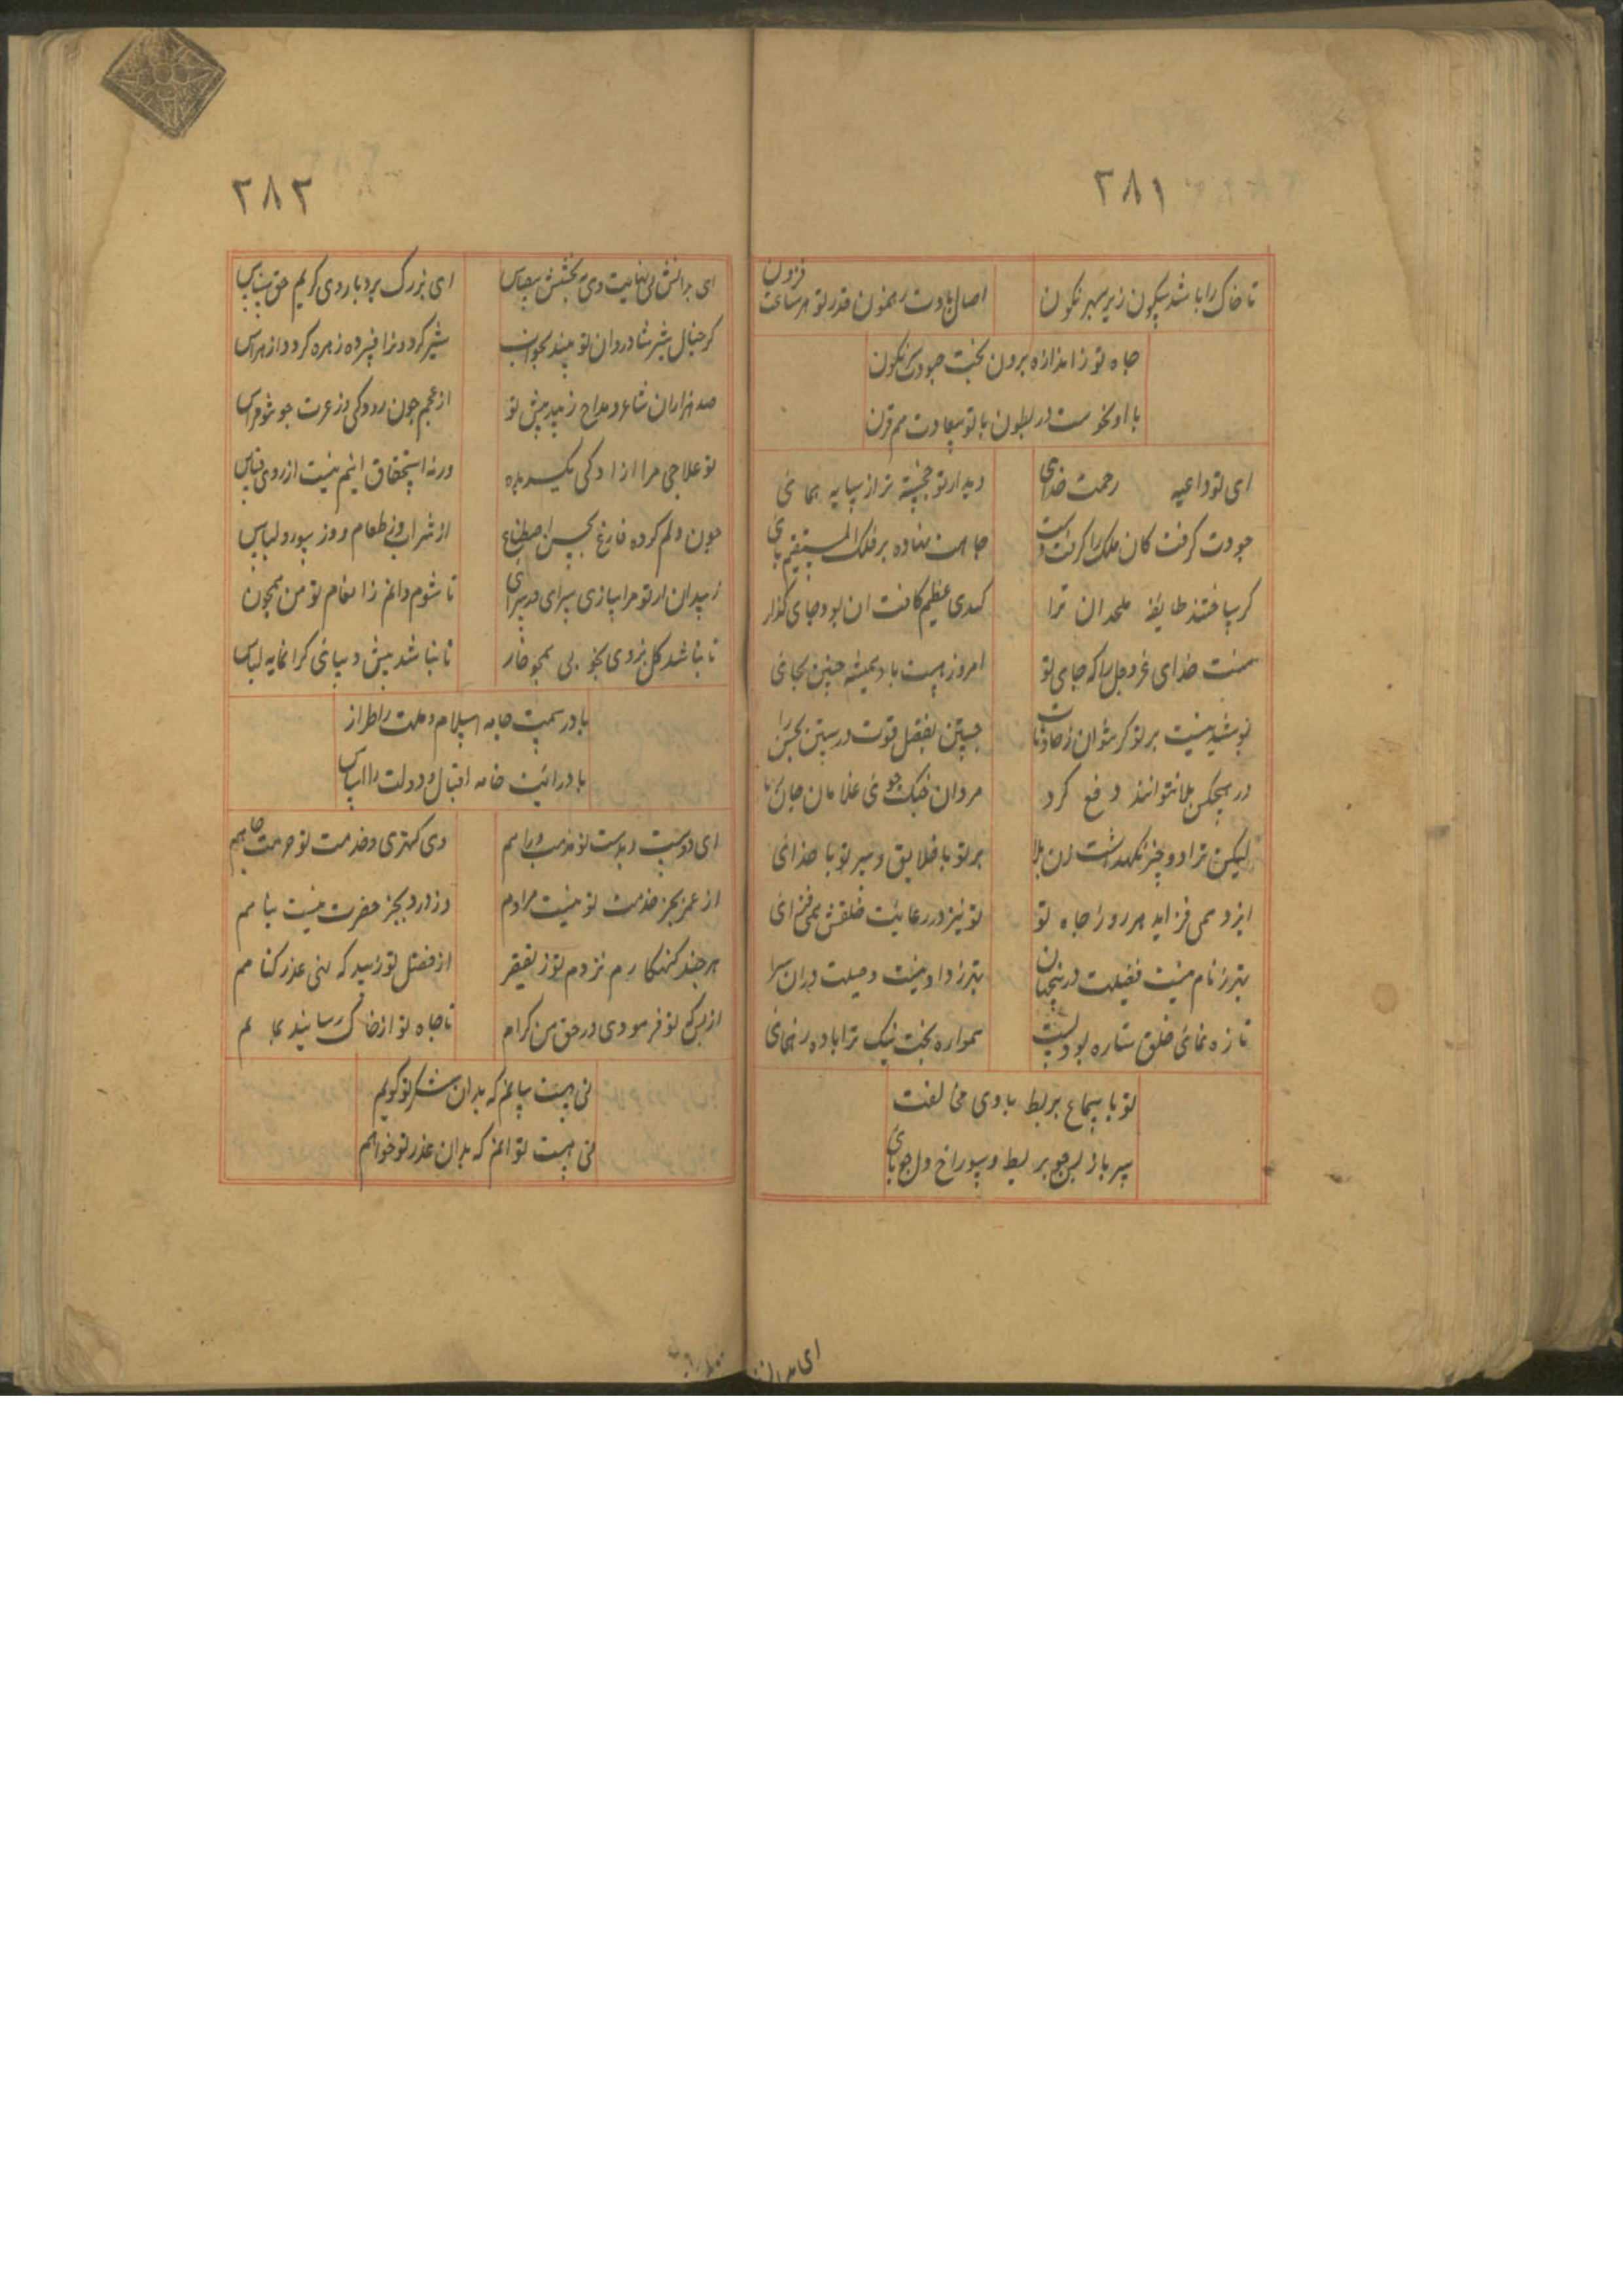 ۲۸۱
تا خاک را باشد سکون زیر سپهر نکون
اصال بادت رهنمون قدر تو هر ساعت فزون
جاه تو ز اندازه برون بخت حسودت سرنکون
با او نحوست در بطون با تو سعادت هم قرن
ای تو داعیه رحمت خدای
دیدار تو خجسته تر از سایه همای
جودت کرفت کان ملک را کرفت دست
جاهت نهاده بر فلک المستقیم پای
کر ساختند طایفه ملحدان ترا
کیدی عظیم کافت ان بود جای کذار
منت خدای عزوجل را که جای تو
امروز هست بادیمیشه چنین بجای
پوشیده نیست بر تو کز حادثات
جستن بفضل قوت درستن بحسن را
در هیچکس بلا نتوانند دفع کرد
مردان جنک جوی غلامان جان
لیکن ترا دو چیز نکهداشت زان بلا
بر تو با خلایق و سر تو با خدای
ایزد همی فزاید هر روز جاه تو
تو نیز در رعایت خلقش همی فزای
بهتر ز نام نیست فضیلت درینجهان
بهتر ز داد نیست وصیلت دران سرا
تا زه نمای خلق ستاره بود بشب
همواره بخت نیک ترا باد ره نمای
تو با سماع بربط با وی مخالفت
سر باز پس چو بربط و سوراخ دل چو نای
ای بدانش
۲۸۲
ای بدانش بی نهایت وی ببخشش بیقیاس
ای بزرک بردبار وی کریم حق شناس
کر خیال شیر شادروان تو بیند بخواب
شیر کردون را فسرده زهره کردد از هراس
صد هزاران شاعر و مداح زیبد پیش تو
از عجم چون رودکی وز عرب چو بو فراس
تو علاجی مرا از ادکی بکسد بده
ورنه استحقاق اینم نیست از روی قیاس
چون دلم کرده فارغ بحسن اصطناع
از شراب وز طعام و وز ستور و لباس
زیدان از تو مرا سازی سرای در سرای
تا شوم دائم ز انعام تو من همچون
تا نباشد کل بزدی بخوبی همچو خار
تا نباشد پیش دیبای کرانمایه لباس
باد رسمت جامه اسلام و ملت را طراز
باد رایت خانه اقبال و دولت را اساس
ای دوستی و دست تو مذهب و راهم
وی کهتری و خدمت تو حرمت و جاهم
از عمر بجز خدمت تو نیست مرادم
وز درد بجز حضرت نیست پناهم
هر چند کنهکارم نزدم تو ز تقصیر
از فضل تو زیبد که نهی عذر کناهم
از بس که تو فرمودی در حق من کرام
تا جاه تو از خاک رسانید بما هم
نی هست بیانم که بدان شکر تو کویم
نی هست توانم که بدان عذر تو خواهم